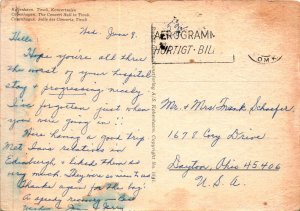 København. Tivoli. Koncertsalen
Copenhagen. The Concert Hall in Tivoli.
Copenhague. Salle des Concerts, Tivoli.
Wed. June 9.
AEROGRAM
HURTIGT - BIL
Hello
Hope you're all three
the worst of your hospital
stay & progressing nicely
I've forgotten just when
you are going in!!
Were having a good trip
Met some relations in
Edinburgh & liked them so
very much. They were so nice to us!
Thanks again for the bag!
A speedy recovery - Best
Mr. & Mrs. Frank Schaefer
1678 Cory Drive
Dayton, Ohio 45406
U.S.A.